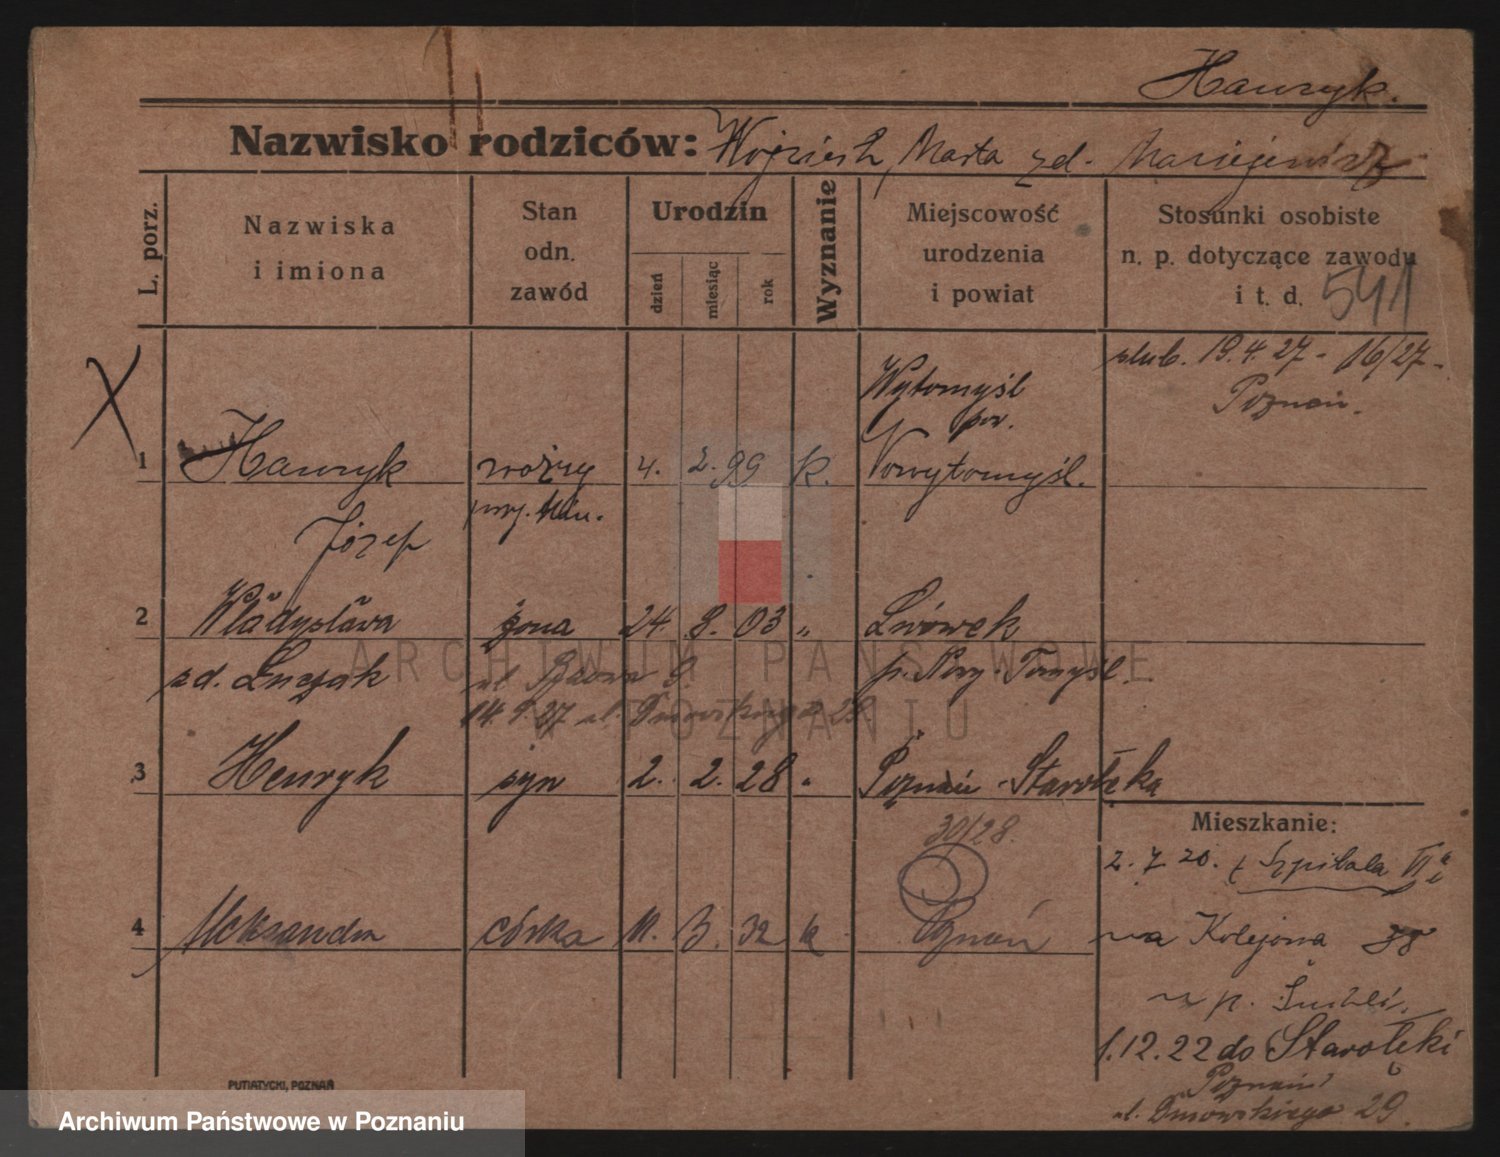 Hauryk.
Nazwisko rodziców: Wojciech, Marta zd. Maciejewicz
L. porz.
Nazwiska i imiona
Stan odn. zawód
Urodzin
dzień miesiąc rok
Wyznanie
Miejscowość urodzenia i powiat
Stosunki osobiste n. p. dotyczące zawodu i t. d. 541
ślub. 19.4.27 - 16/27 -
Poznań.
Wytomyśl
pow.
1 Hauryk woźny 4. 2. 99 k. Nowytomyśl.
Józef
2 Władysława żona 24. 8. 03 " Lwówek
zd. Łuczak ul. p. Nowy-Tomyśl.
14.9.27 ul. Dmowskiego 29
3 Henryk syn 2. 2. 28 " Poznań - Starołęka
30/28.
Mieszkanie:
2.7.20. z Szpitala VII
4 Aleksandra córka 11. 3. 32 k Poznań
na Kolejowa 38
u p.
1.12.22 do Starołęki
Poznań
ul. Dmowskiego 29.
PUTIATYCKI, POZNAŃ
ARCHIWUM PAŃSTWOWE
W POZNANIU
Archiwum Państwowe w Poznaniu